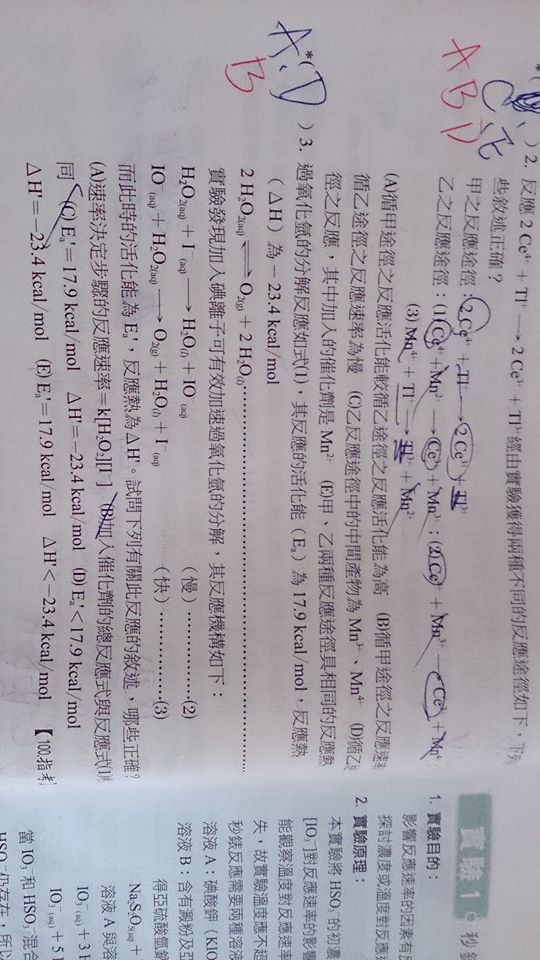 *( ) 2. 反應 2 Ce⁴⁺ + Tl⁺ ⟶ 2 Ce³⁺ + Tl³⁺ 經由實驗獲得兩種不同的反應途徑如下，下列
些敘述正確？
甲之反應途徑：2 Ce⁴⁺ + Tl⁺ ⟶ 2 Ce³⁺ + Tl³⁺
乙之反應途徑：(1) Ce⁴⁺ + Mn²⁺ ⟶ Ce³⁺ + Mn³⁺；(2) Ce⁴⁺ + Mn³⁺ ⟶ Ce³⁺ + Mn⁴⁺；
(3) Mn⁴⁺ + Tl⁺ ⟶ Tl³⁺ + Mn²⁺
(A)循甲途徑之反應活化能較循乙途徑之反應活化能為高 (B)循甲途徑之反應速率
循乙途徑之反應速率為慢 (C)乙反應途徑中的中間產物為 Mn³⁺、Mn⁴⁺ (D)循乙
徑之反應，其中加入的催化劑是 Mn²⁺ (E)甲、乙兩種反應途徑具相同的反應熱
C,E
A B D
*( ) 3. 過氧化氫的分解反應如式(1)，其反應的活化能（Eₐ）為 17.9 kcal/mol，反應熱
（ΔH）為 −23.4 kcal/mol
2 H₂O₂(aq) ⇌ O₂(g) + 2 H₂O(l) ……………………
實驗發現加入碘離子可有效加速過氧化氫的分解，其反應機構如下：
H₂O₂(aq) + I⁻(aq) ⟶ H₂O(l) + IO⁻(aq) （慢）…………(2)
IO⁻(aq) + H₂O₂(aq) ⟶ O₂(g) + H₂O(l) + I⁻(aq) （快）…………(3)
而此時的活化能為 Eₐ'，反應熱為 ΔH'。試問下列有關此反應的敘述，哪些正確？
(A)速率決定步驟的反應速率 = k[H₂O₂][I⁻] (B)加入催化劑的總反應式與反應式(1)
同 (C) Eₐ' = 17.9 kcal/mol ΔH' = −23.4 kcal/mol (D) Eₐ' < 17.9 kcal/mol
ΔH' = −23.4 kcal/mol (E) Eₐ' = 17.9 kcal/mol ΔH' < −23.4 kcal/mol 【100.指考
A,D
B
實驗 1 秒
1. 實驗目的：
影響反應速率的因素有
探討濃度或溫度對反應
2. 實驗原理：
本實驗將 HSO₃⁻ 的初濃
[IO₃⁻]對反應速率的影響
能觀察溫度對反應速率
失，故實驗溫度應不超
秒錶反應需要兩種溶液
溶液 A：碘酸鉀（KIO
溶液 B：含有澱粉及亞
得亞硫酸氫鈉
Na₂S₂O₅(s) +
溶液 A 與溶
IO₃⁻(aq) + 3 H
IO₃⁻(aq) + 5 I
當 IO₃⁻ 和 HSO₃⁻ 混合
HSO₃⁻ 仍存在，所以